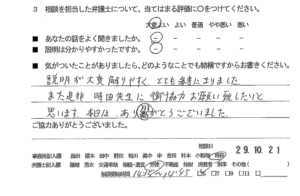 3 相談を担当した弁護士について、当てはまる評価に○をつけてください。
大変よい よい 普通 やや悪い 悪い
■ あなたの話をよく聞きましたか。
■ 説明は分かりやすかったですか。
■ 気がついたことがありましたら、どのようなことでも結構ですからお書きください。
説明が大変 解りやすく、とても参考になりました
また是非 時田先生に 御協力 お願い致したいと
思います。本日は、ありがとうございました。
ご協力ありがとうございました。
29.10.21